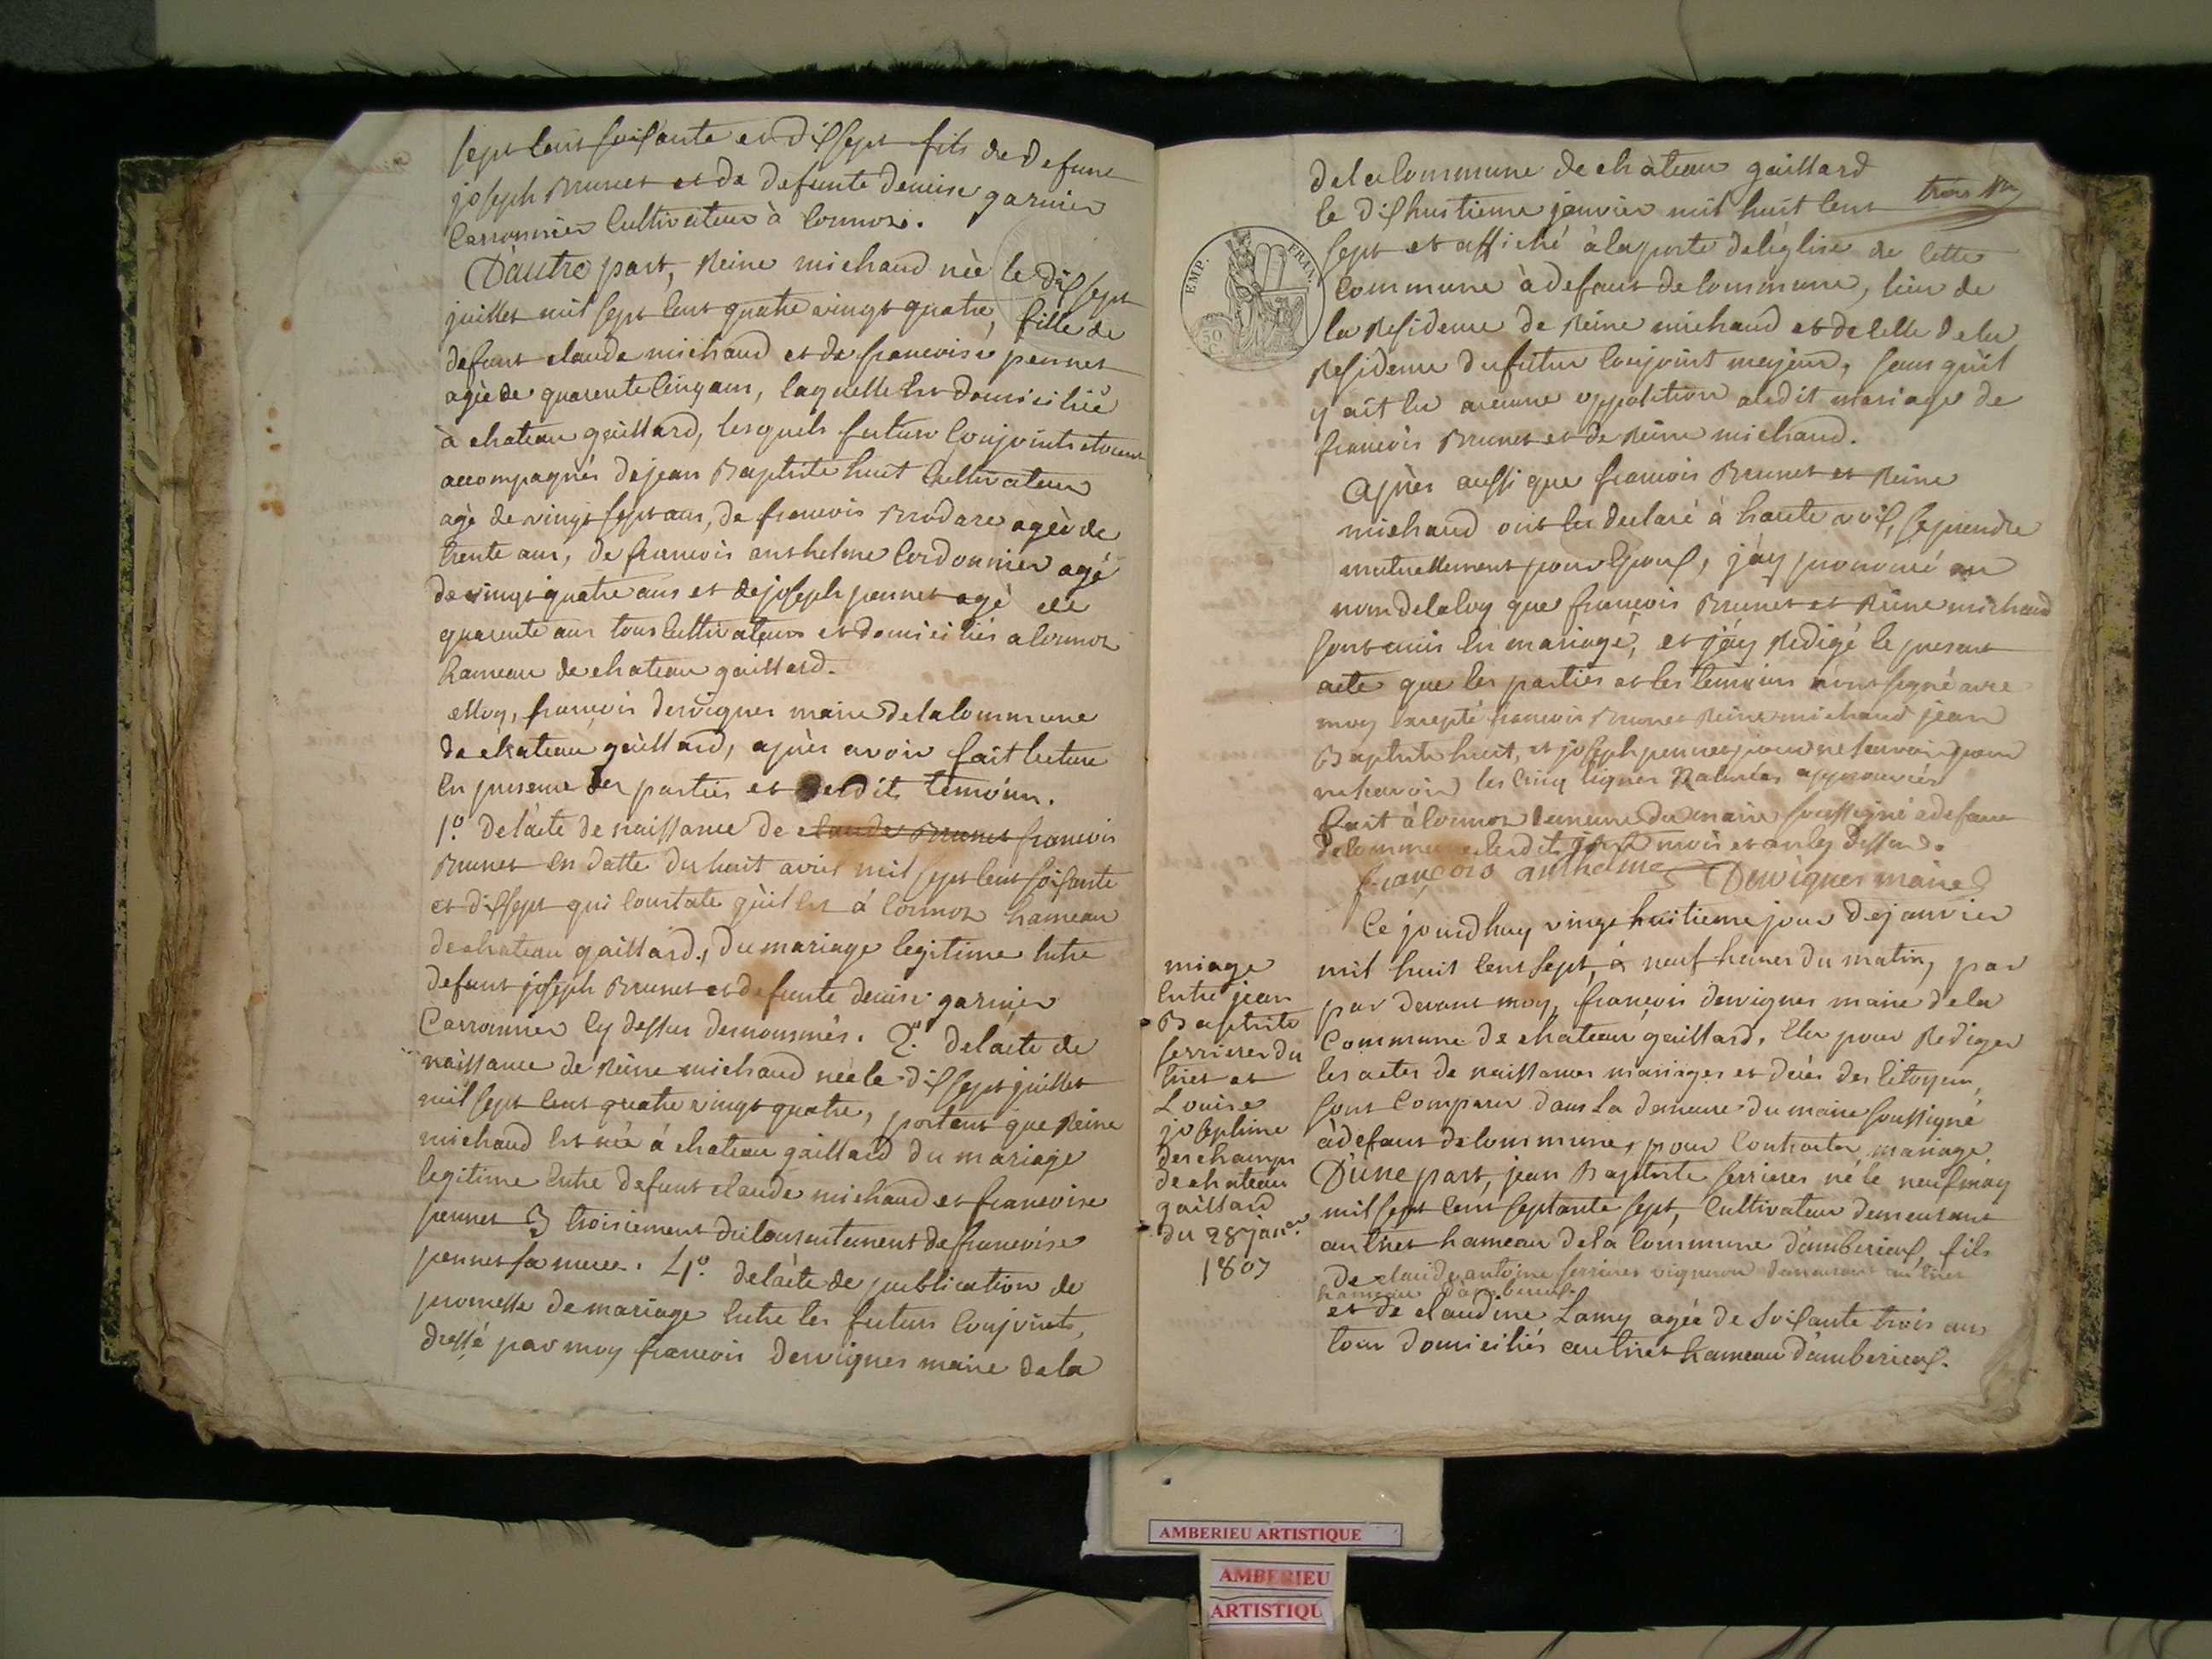 sept cent soixante et dix sept fils de defunt
joseph Brunet et de defunte denise garnier
Carronnier Cultivateur à Cormoz.
D'autre part, Reine michaud née le dix sept
juillet mil sept cent quatre vingt quatre, fille de
defunt claude michaud et de francoise pennet
agée de quarente cinq ans, laquelle est domiciliée
à chateau gaillard, lesquels futurs conjoints etoient
accompagnés de jean Baptiste huit Cultivateur
agé de vingt sept ans, de francois Brodare agée de
trente ans, de francois anthelme Cordonnier agé
de vingt quatre ans et de joseph pennet agé de
quarente ans tous Cultivateurs et domiciliés a Cormoz
hameau de chateau gaillard.
Moy, francois dervignes maire de la Commune
de chateau gaillard, après avoir fait lecture
En presence des parties et desdits temoins.
1.º de l'acte de naissance de claude Brunet francois
Brunet En datte du huit avril mil sept cent soixante
et dix sept qui Constate qu'il est à Cormoz hameau
de chateau gaillard, du mariage legitime Entre
defunt joseph Brunet et defunte denise garnier
Carronnier Cy dessus denommés. 2º de l'acte de
naissance de Reine michaud née le dix sept juillet
mil sept cent quatre vingt quatre, portant que Reine
michaud Est née à chateau gaillard du mariage
legitime Entre defunt claude michaud et francoise
pennet 3 troisiement du Consentement de francoise
pennet sa mere. 4º. de l'acte de publication de
promesse de mariage Entre les futurs Conjoints,
dressé par moy francois dervignes maire de la
de la Commune de château gaillard
le dix huitieme janvier mil huit cent
trois
sept et affiché à la porte de l'église de cette
Commune à defaut de Commune, lieu de
la Residence de Reine michaud et de celle de la
Residence du futur Conjoint majeur, sans qu'il
y ait Eu aucune opposition audit mariage de
francois Brunet et de Reine michaud.
Après aussi que francois Brunet et Reine
michaud ont Eu declaré à haute voix, se prendre
mutuellement pour Epoux, j'ay prononcé au
nom de la loy que francois Brunet et Reine michaud
sont unis En mariage, et j'ay Redigé le present
acte que les parties et les temoins n'ont signé avec
moy Excepté francois Brunet Reine michaud jean
Baptiste huit, et joseph pennet pour ne savoir pour
ne savoir les Cinq lignes approuvées
fait à Cormoz demeure du maire soussigné a defaut
de Commune lesdits jour mois et an Cy dessus.
francois anthelme Dervignes maire
Ce jourd'huy vingt huitieme jour de janvier
mil huit cent sept, à neuf heures du matin, par
par devant moy, francois dervignes maire de la
Commune de chateau gaillard, Elu pour Rediger
les actes de naissances mariages et decés des Citoyens,
sont Comparu dans la demeure du maire soussigné
à defaut de Commune, pour Contracter mariage
D'une part, jean Baptiste ferrieres né le neuf may
mil sept cent septante sept, Cultivateur demeurant
au tiret hameau de la Commune d'amberieux, fils
de claude antoine ferrieres vigneron demeurant au tiret
hameau d'amberieux.
et de claudine Lamy agée de soixante trois ans
tous domiciliés au tiret hameau d'amberieux.
miage
Entre jean
Baptiste
ferrieres du
tiret et
Louise
josephine
deschamps
de chateau
gaillard
du 28 janer
1807
EMP. FRAN.
50
C.
AMBERIEU ARTISTIQUE
AMBERIEU
ARTISTIQU